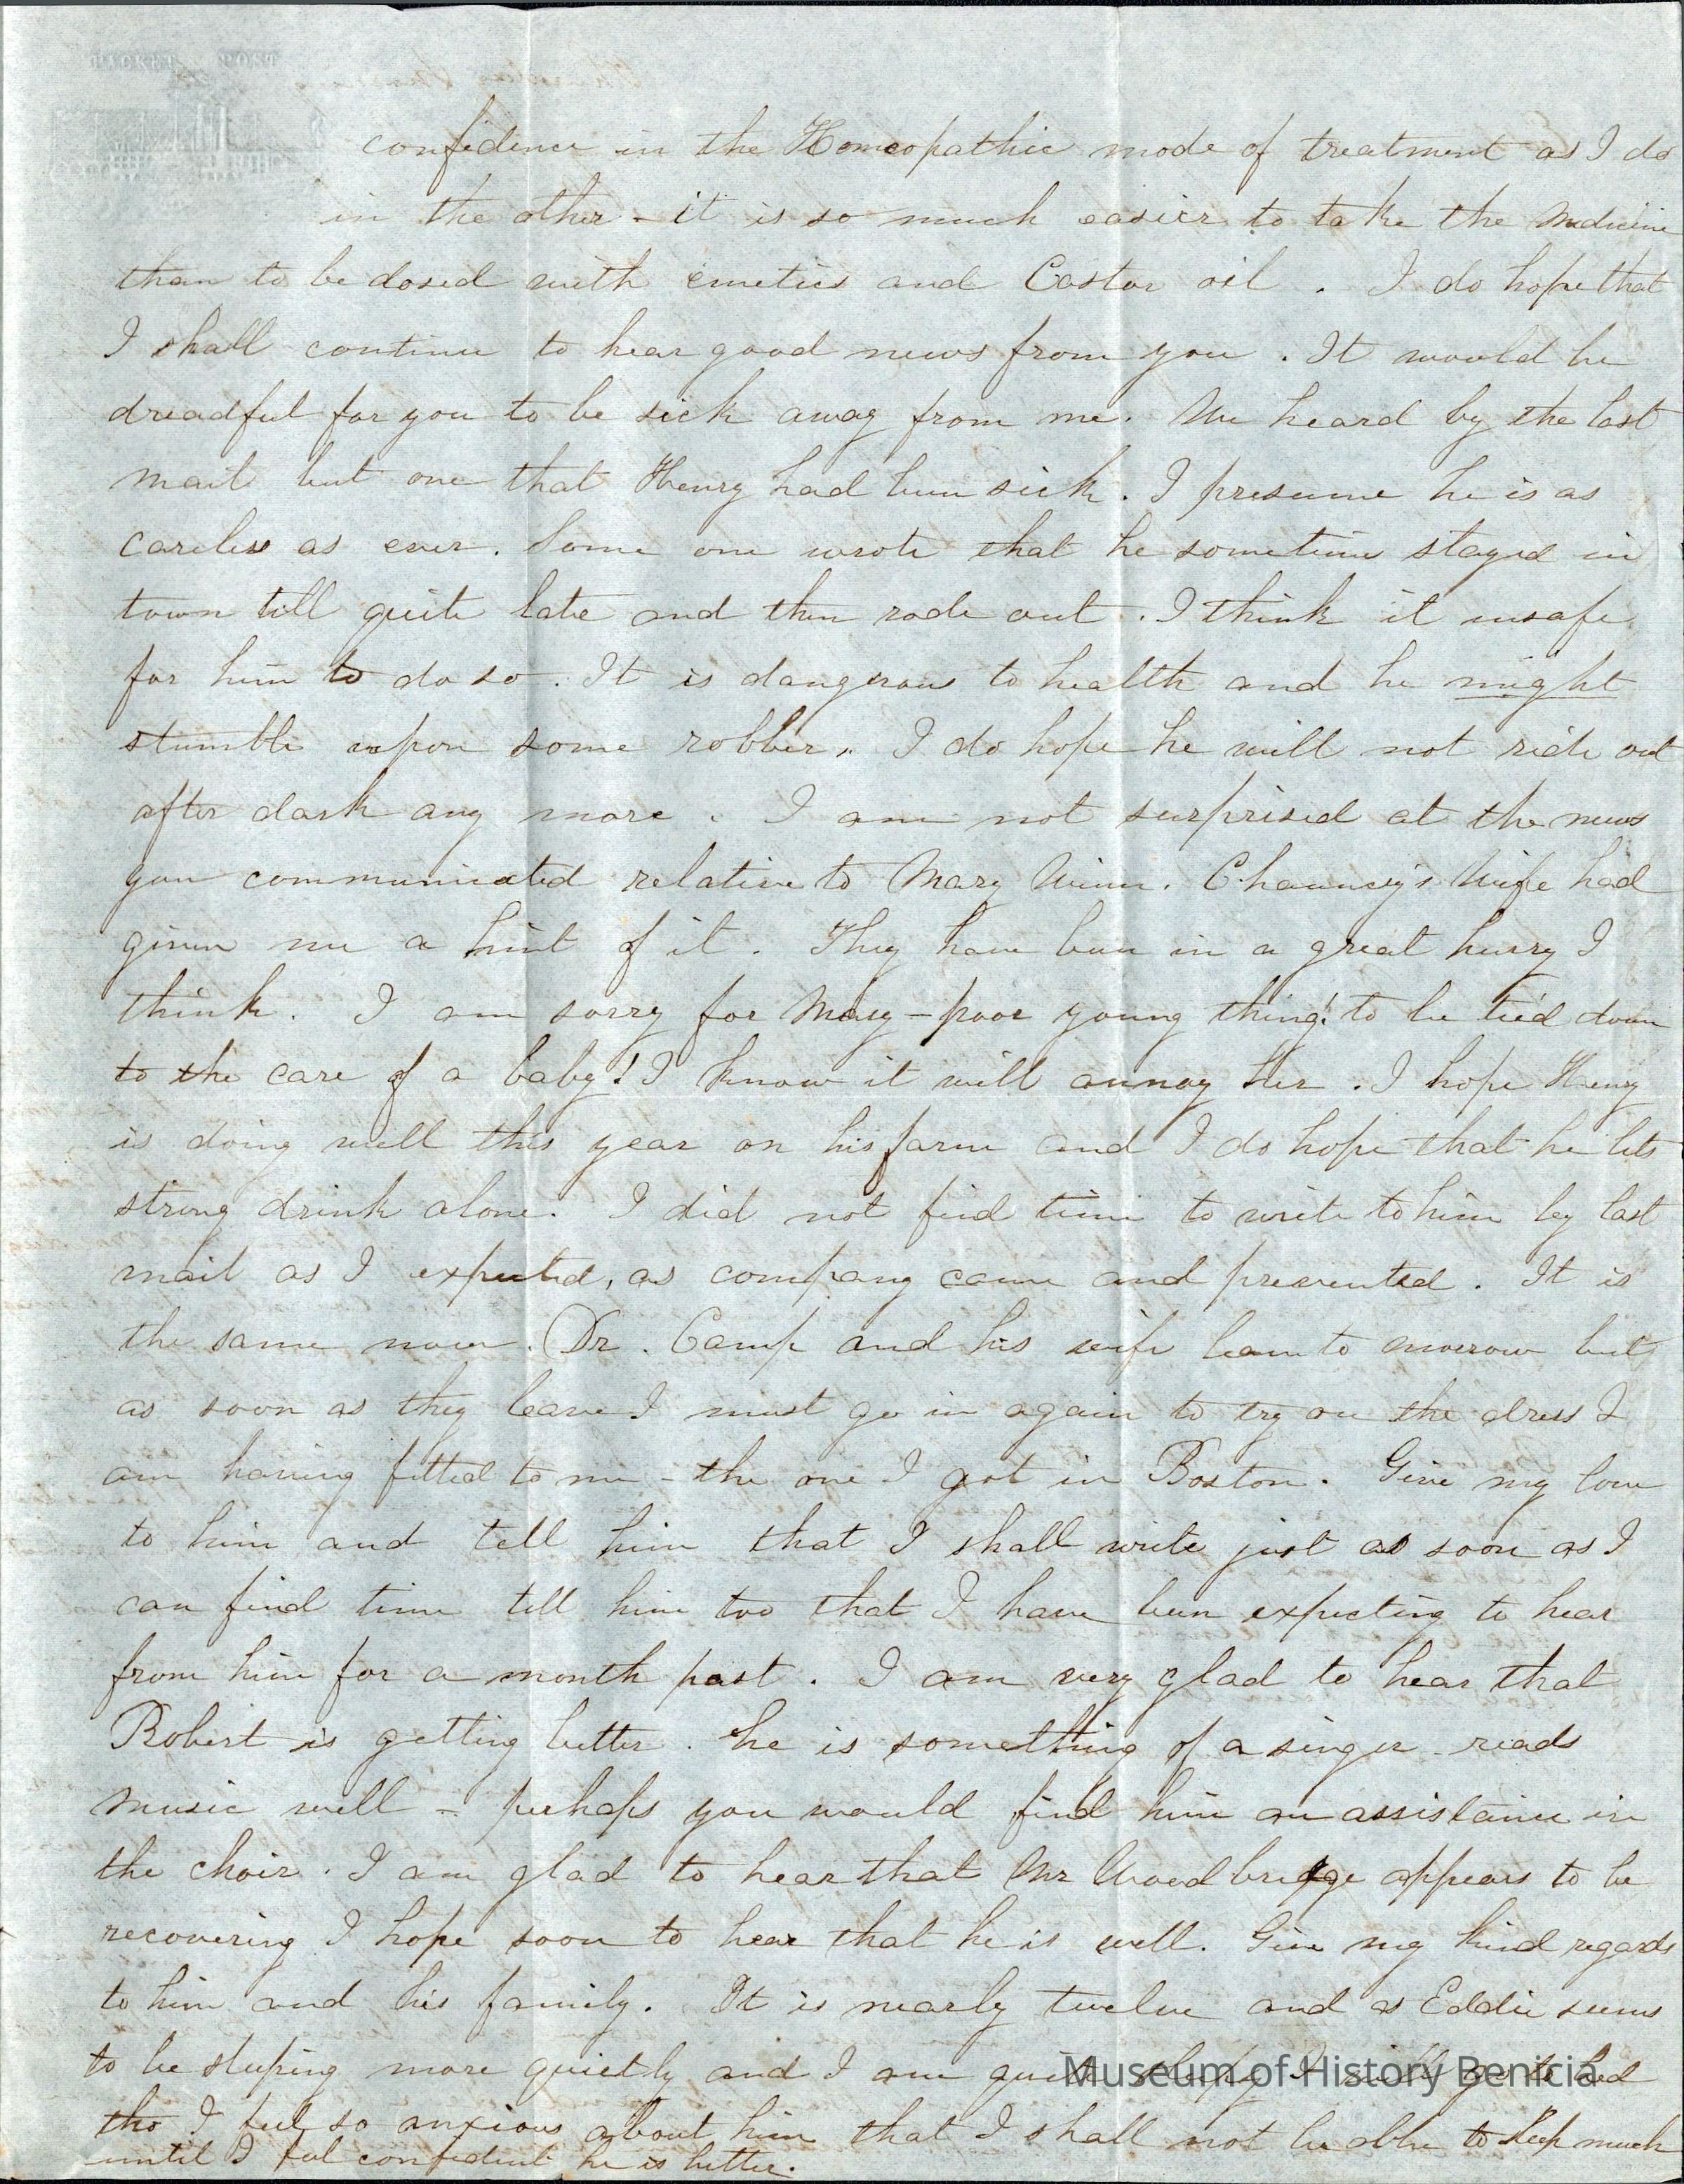 PACKET POST
confidence in the Homeopathic mode of treatment as I do
in the other - it is so much easier to take the medicine
than to be dosed with emetics and Castor oil . I do hope that
I shall continue to hear good news from you . It would be
dreadful for you to be sick away from me. We heard by the last
mail but one that Henry had been sick. I presume he is as
careless as ever. Some one wrote that he sometimes stayed in
town till quite late and then rode out . I think it unsafe
for him to do so . It is dangerous to health and he might
stumble upon some robber. I do hope he will not ride out
after dark any more . I am not surprised at the news
you communicated relative to Mary . Chauncey's Wife had
given me a hint of it . They have been in a great hurry I
think . I am sorry for Mary - poor young thing! to be tied down
to the care of a baby! I know it will annoy her . I hope Henry
is doing well this year on his farm and I do hope that he lets
strong drink alone. I did not find time to write to him by last
mail as I expected, as company came and prevented . It is
the same now . Dr . Camp and his wife leave to morrow but
as soon as they leave I must go in again to try on the dress I
am having fitted to me - the one I got in Boston . Give my love
to him and tell him that I shall write just as soon as I
can find time tell him too that I have been expecting to hear
from him for a month past . I am very glad to hear that
Robert is getting better . he is something of a singer - reads
music well - perhaps you would find him an assistance in
the choir . I am glad to hear that Mr Woodbridge appears to be
recovering I hope soon to hear that he is well. Give my kind regards
to him and his family. It is nearly twelve and as Eddie seems
to be sleeping more quietly and I am quite sleepy I will go to bed
tho I feel so anxious about him that I shall not be able to sleep much
until I feel confident he is better.
Museum of History Benicia